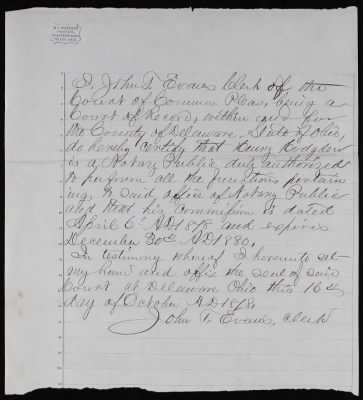 I, John T. Evans Clerk of the
Court of Common Pleas, being a
Court of Record, within and for
the County of Delaware, State of Ohio,
do hereby certify that
is a Notary Public duly authorized
to perform all the functions pertain
ing to said office of Notary Public
and that his commission is dated
April 6 AD 1878 and expires
December 30th AD 1880.
In testimony whereof I hereunto set
my hand and affix the seal of said
Court at Delaware Ohio this 16th
day of October AD 1878.
John T. Evans, Clerk